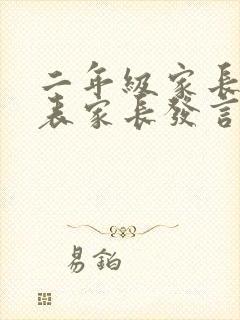 二年級家長
表家長發言
易鉑